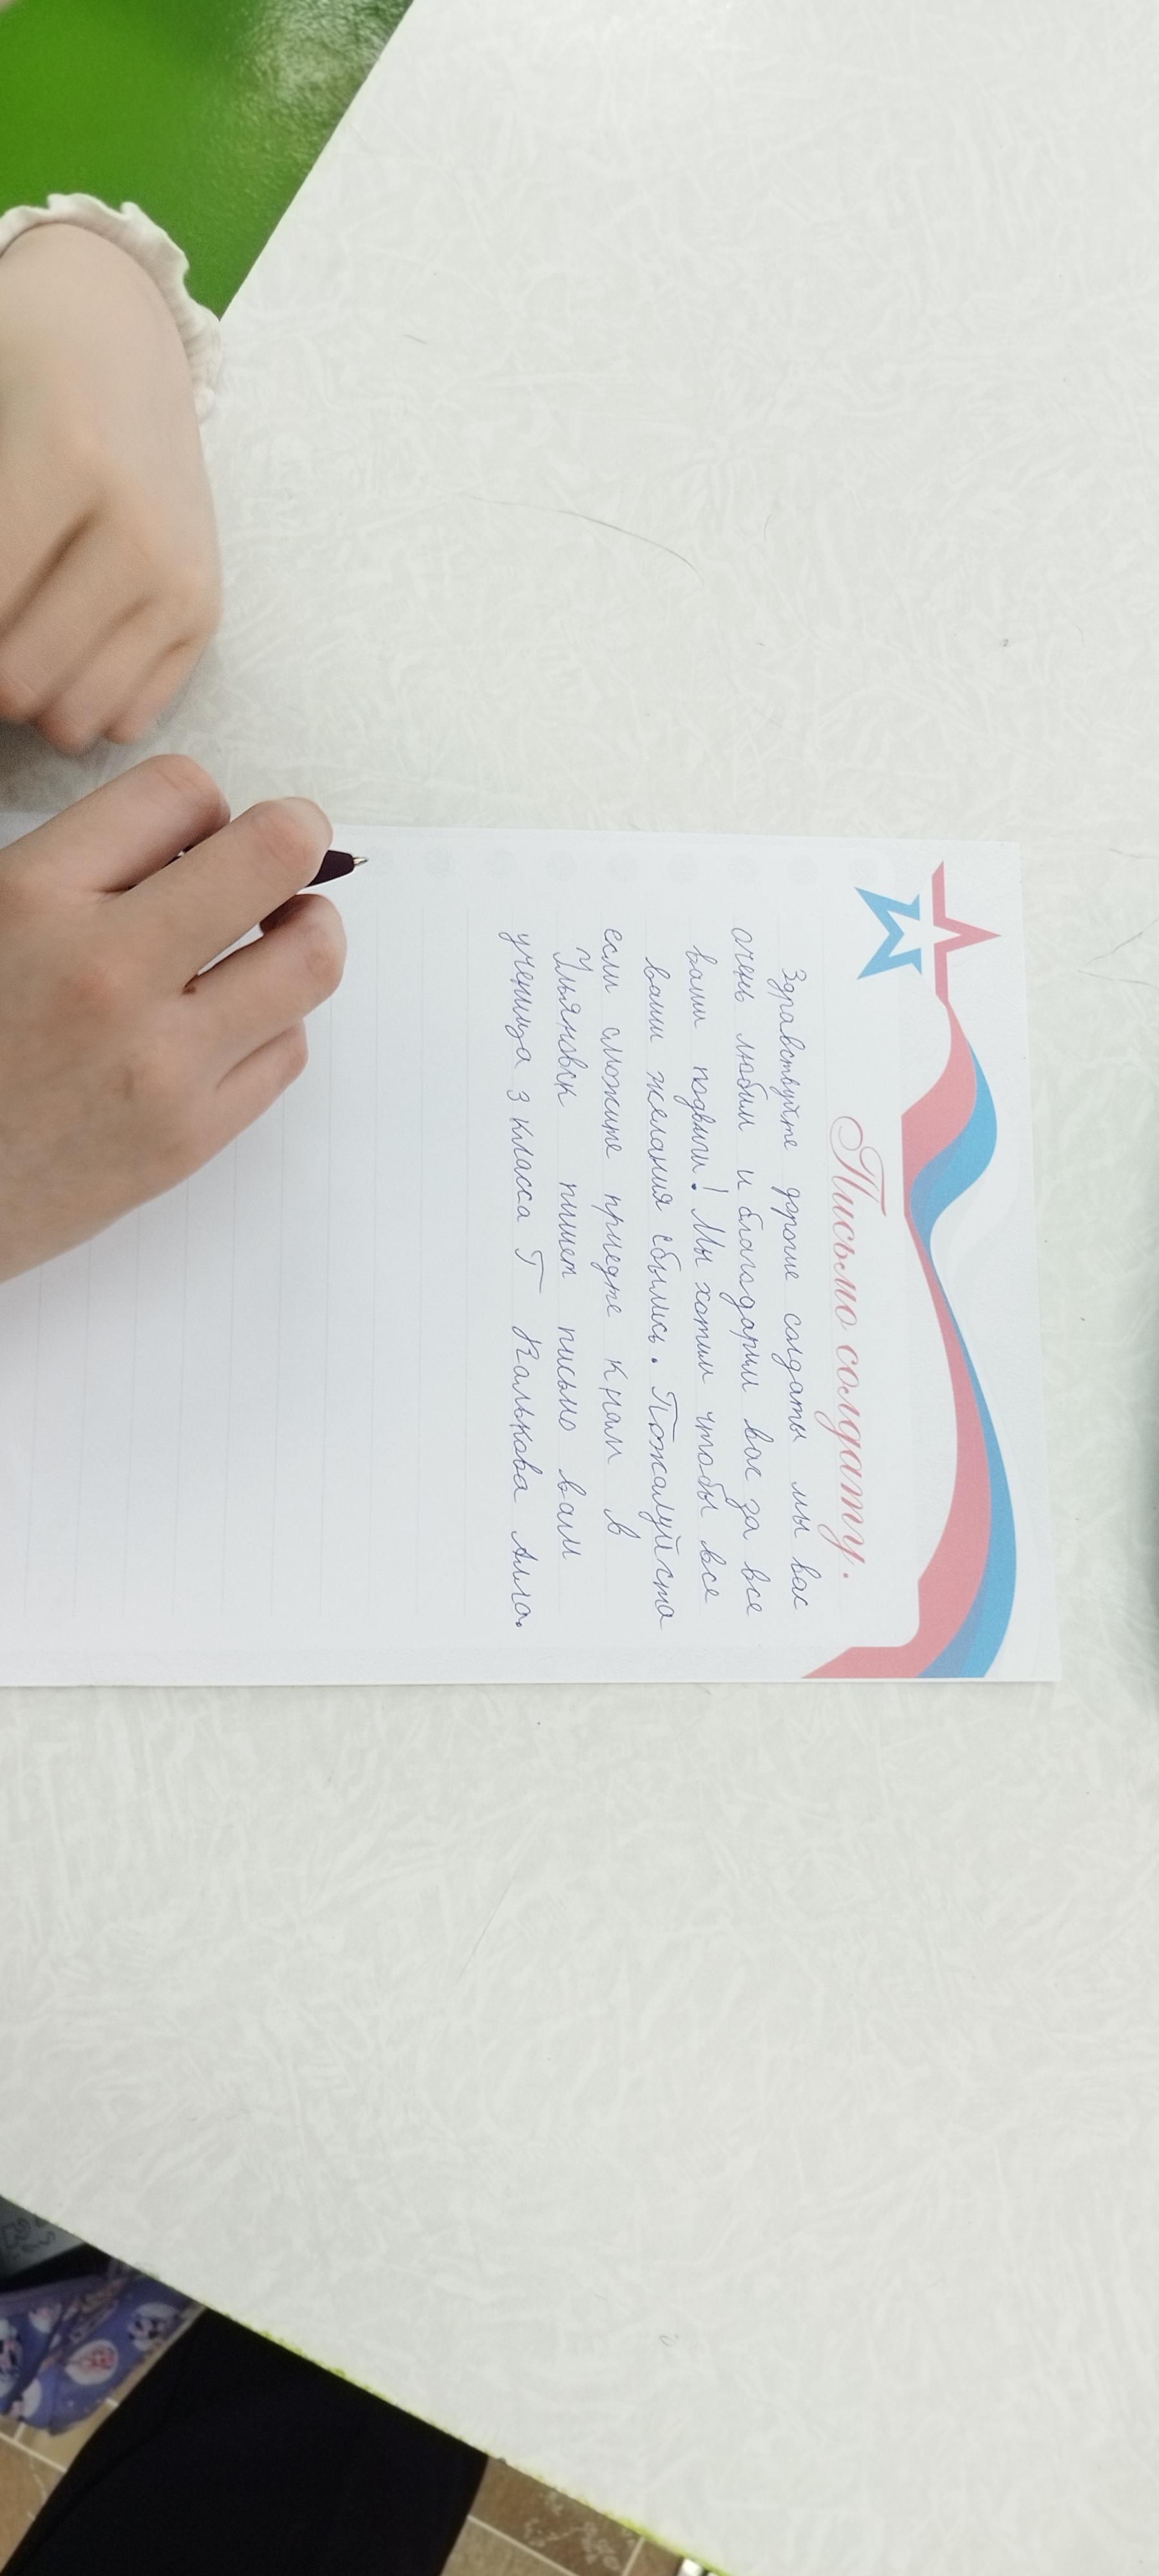 Письмо солдату.
Здравствуйте дорогие солдаты мы вас
очень любим и благодарим вас за все
ваши подвиги! Мы хотим чтобы все
ваши желания сбылись. Пожалуйста
если сможите приедте к нам в
Ульяновск пишет письмо вам
ученица 3 класса Т Калькова Алла.